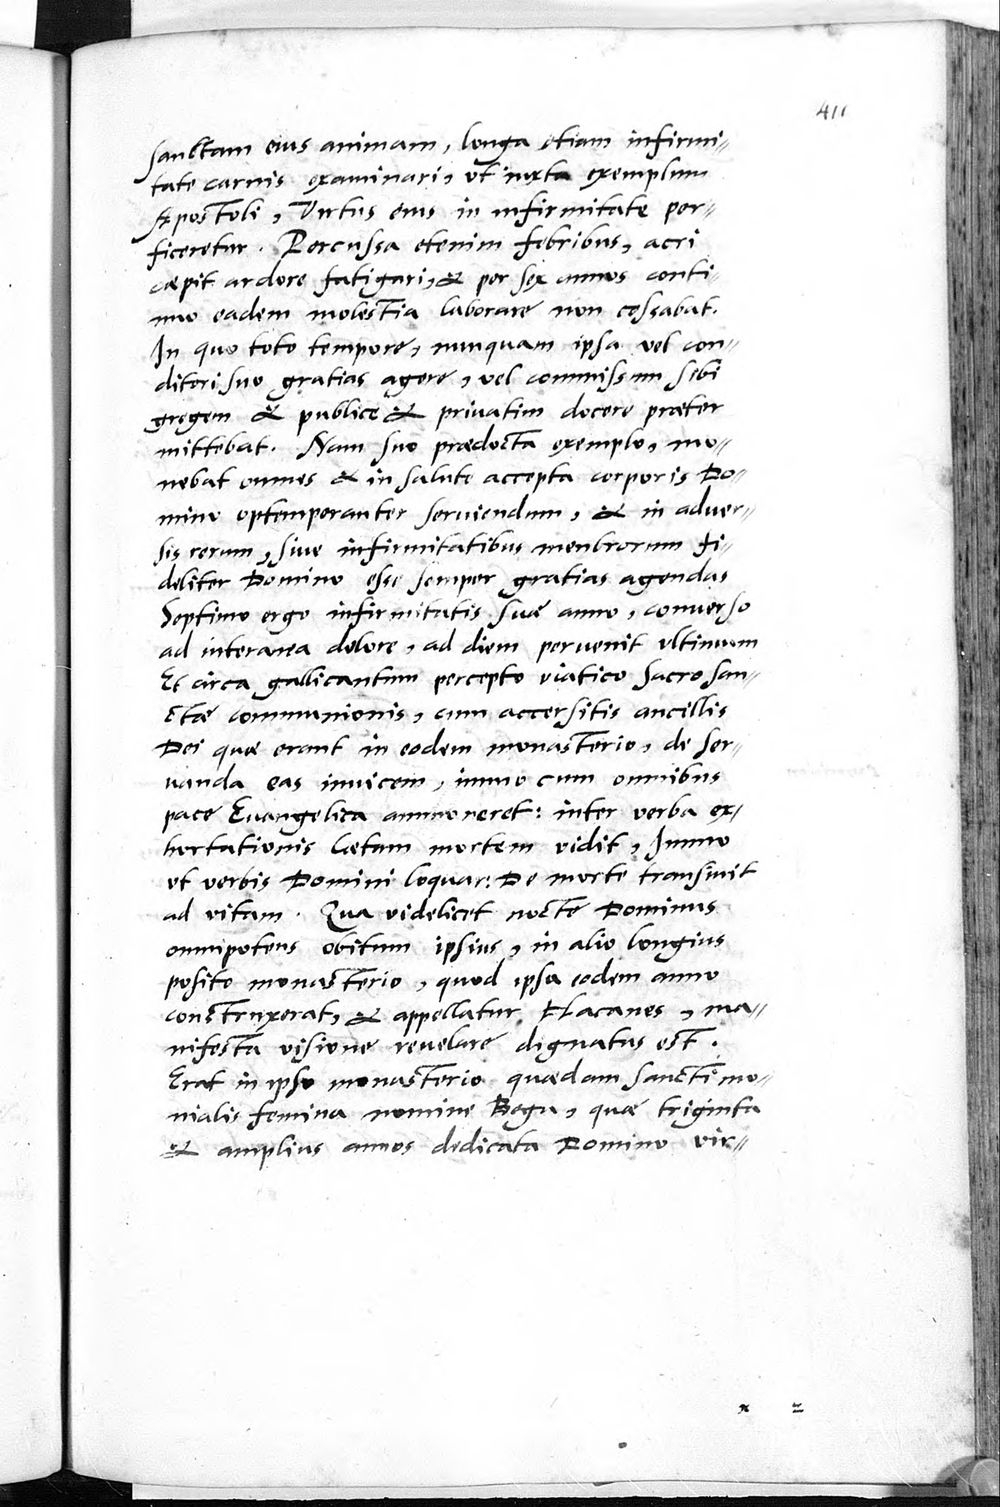 411
sanctam eius animam, longa etiam infirmi-
tate carnis examinari, vt iuxta exemplum
Apostoli, Virtus eius in infirmitate per-
ficeretur. Percussa etenim febribus, acri
cœpit ardore fatigari, & per sex annos conti-
nuo eadem molestia laborare non cessabat.
In quo toto tempore, nunquam ipsa vel con-
ditori suo gratias agere, vel commissum sibi
gregem & publice & priuatim docere præter
mittebat. Nam suo prædocta exemplo, mo-
nebat omnes & in salute accepta corporis Do-
mino optemperanter seruiendum, & in aduer-
sis rerum, siue infirmitatibus menbrorum fi-
deliter Domino esse semper gratias agendas
Septimo ergo infirmitatis suæ anno, conuerso
ad interanea dolore, ad diem peruenit vltimum
Et circa gallicantum percepto viatico sacrosan-
ctæ communionis, cum accersitis ancillis
Dei quæ erant in eodem monasterio, de ser-
uanda eas inuicem, immo cum omnibus
pace Euangelica ammoneret: inter verba ex-
hortationis lætam mortem vidit, Immo
vt verbis Domini loquar: De morte transiuit
ad vitam. Qua videlicet nocte Dominus
omnipotens obitum ipsius, in alio longius
posito monasterio, quod ipsa eodem anno
construxerat, & appellatur Hacanes, ma-
nifesta visione reuelare dignatus est.
Erat in ipso monasterio quædam sanctimo-
nialis femina nomine Begu, quæ triginta
& amplius annos dedicata Domino vir-